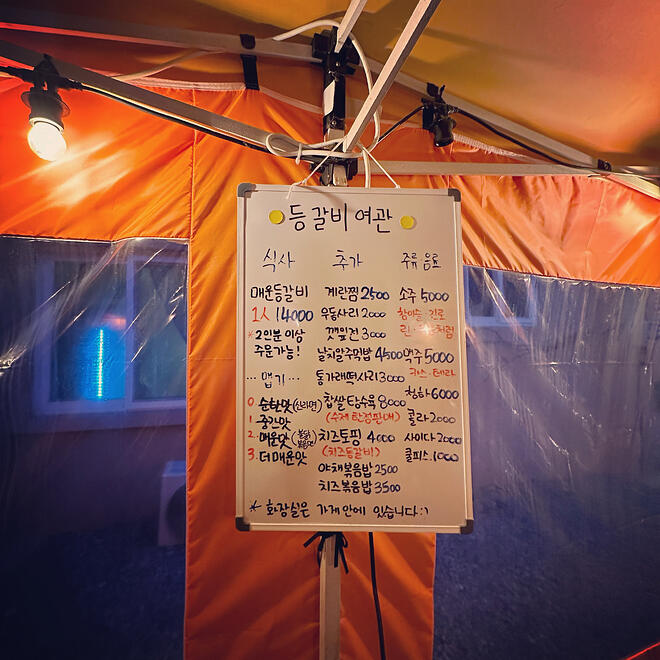 등갈비여관
식사
매운등갈비
1人 14000
*2인분 이상
주문가능!
... 맵기 ...
0. 순한맛 (신라면)
1. 중간맛
2. 매운맛
3. 더매운맛
추가
계란찜 2500
우동사리 2000
깻잎전 3000
날치알주먹밥 4500
통가래떡사리 3000
찹쌀탕수육 8000
(수제 한정판매)
치즈토핑 4000
(치즈등갈비)
야채볶음밥 2500
치즈볶음밥 3500
주류 음료
소주 5000
참이슬·진로
맥주 5000
카스·테라
청하 6000
콜라 2000
사이다 2000
쿨피스 1000
* 화장실은 가게안에 있습니다:)